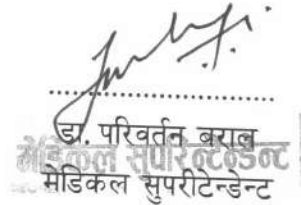 डा. परिवर्तन बराल
मेडिकल सुपरीटेन्डेन्ट
मेडिकल सुपरिन्टेन्डेन्ट